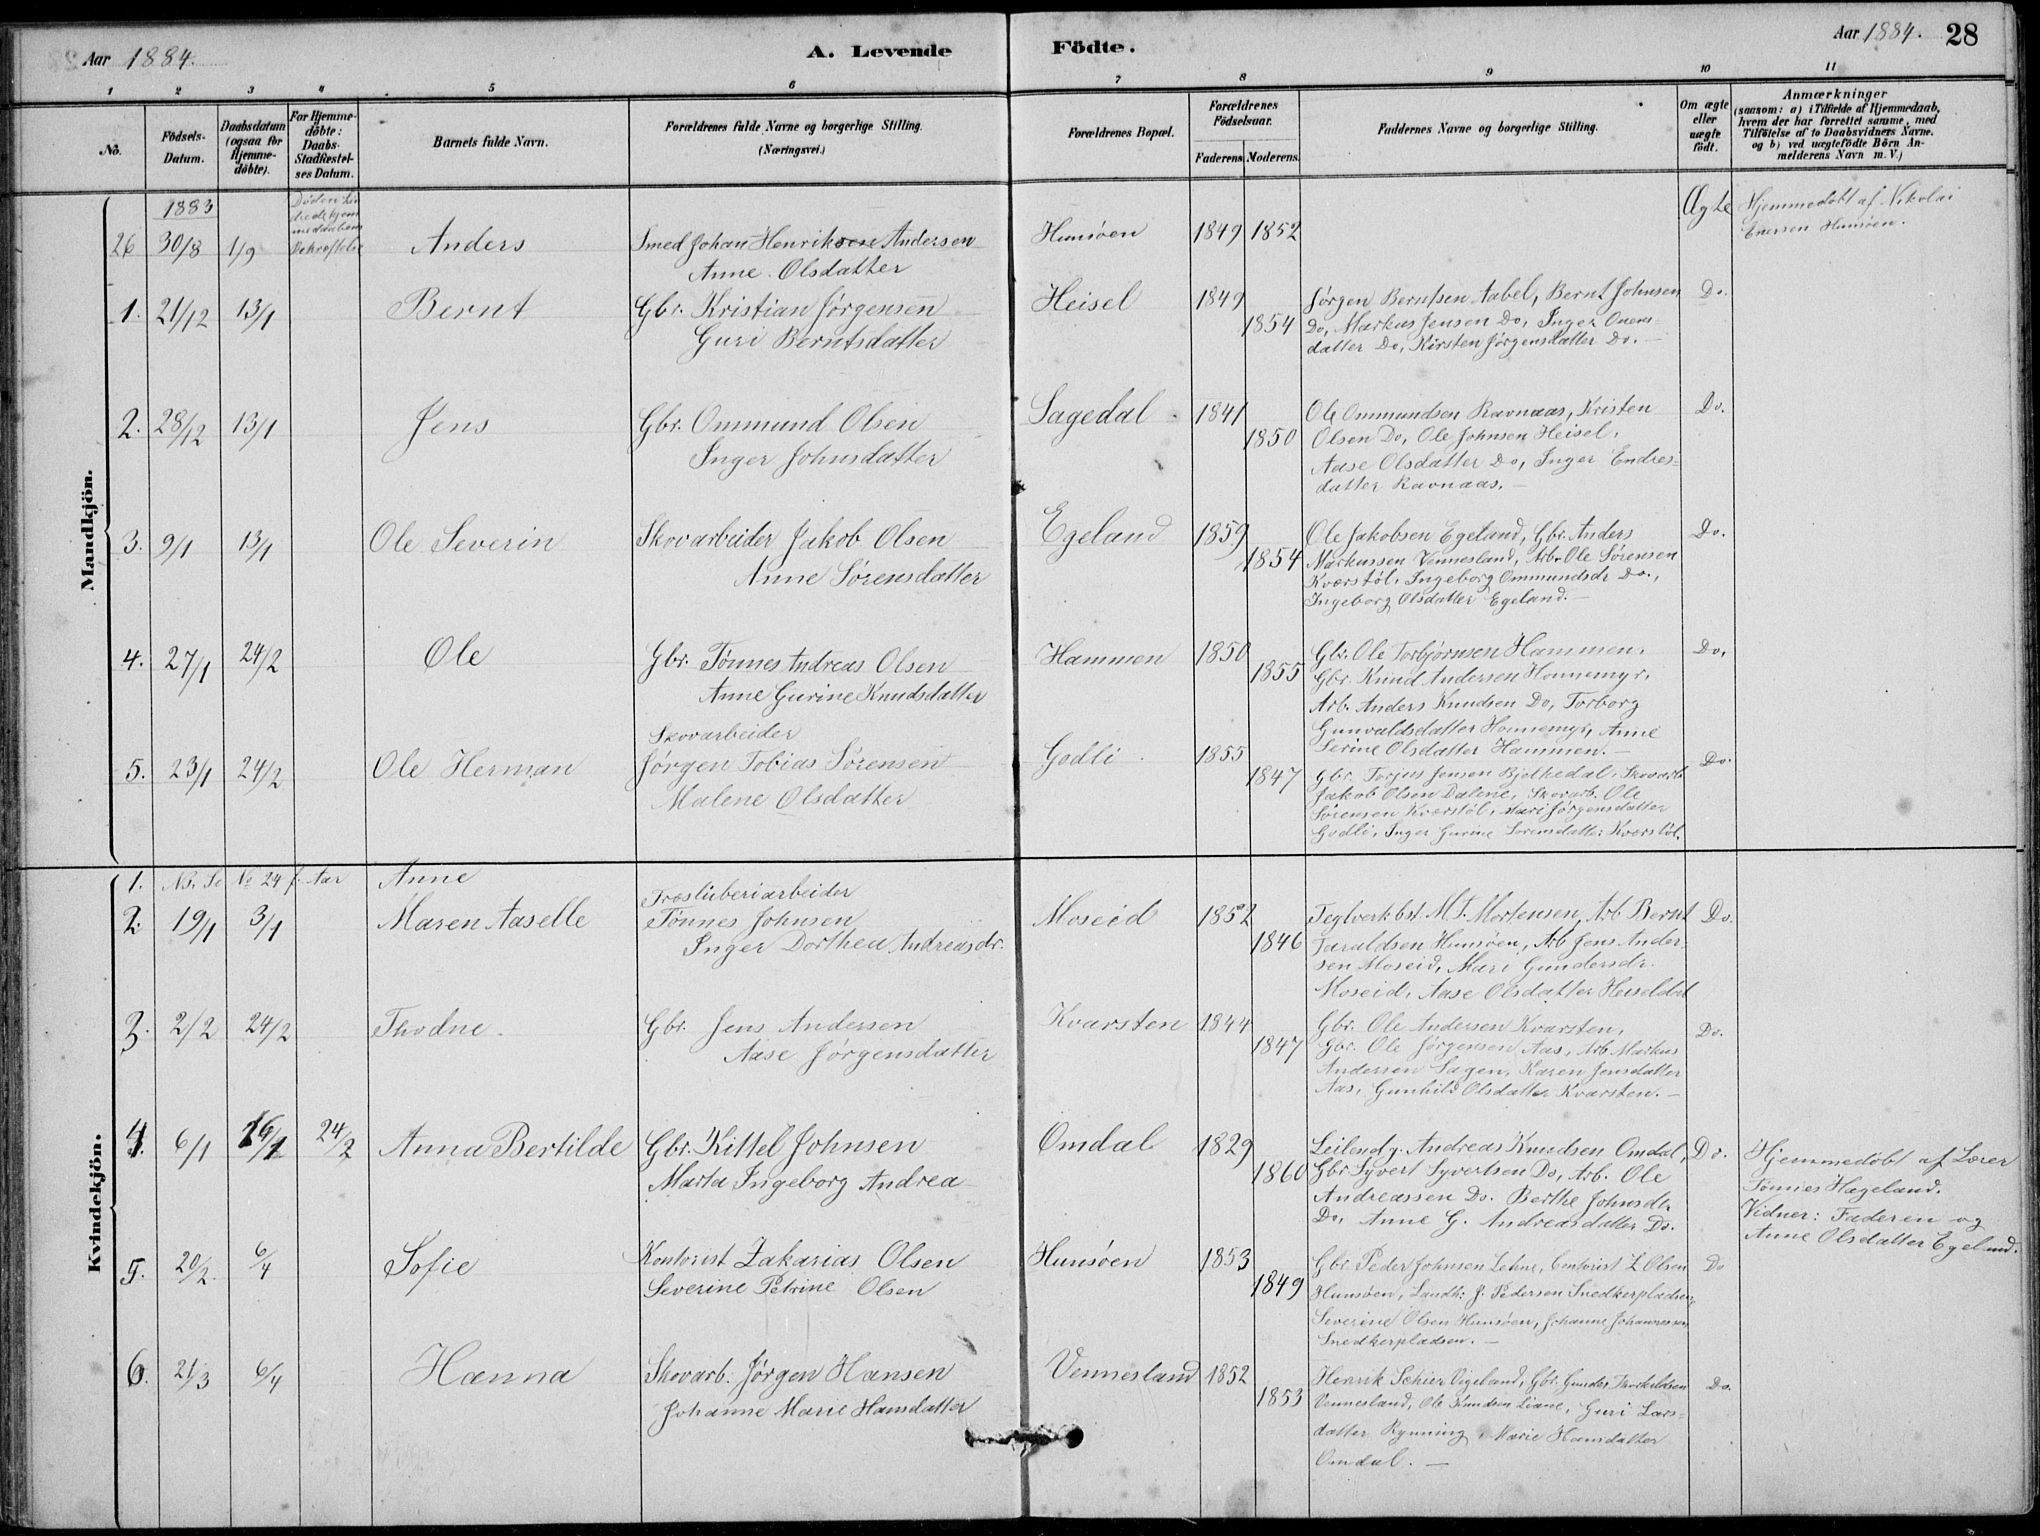 Aar 1884. A. Levende Födte. Aar 1884. 28
1 2 3 4 5 6 7 8 9 10 11
No.
Födsels-Datum.
Daabsdatum (ogsaa for Hjemme-döbte).
For Hjemme-döbte: Daabs-Stadfæstel-ses Datum.
Barnets fulde Navn.
Forældrenes fulde Navne og borgerlige Stilling.
(Næringsvei.)
Forældrenes Bopæl.
Forældrenes Födselsaar.
Faderens. Moderens.
Faddernes Navne og borgerlige Stilling.
Om ægte eller uægte födt.
Anmærkninger
(saasom: a) i Tilfælde af Hjemmedaab,
hvem der har forrettet samme, med
Tilföielse af to Daabsvidners Navne.
og b) ved uægtefödte Börn An-
melderens Navn m. V.)
Mandkjön.
1883
26 30/8 1/9 Anders Smed Johan Henriksen Andersen Hunsøen 1849 1852 Ægte Hjemmedøbt af Nikolai
Anne Olsdatter Enersen Hunsøen.
1. 21/12 13/1 Bernt Gbr. Kristian Jørgensen Heisel 1849 Jørgen Berntsen Aabel, Bernt Johnsen Do.
Guri Berntsdatter 1854 Do, Markus Jensen Do, Inger
datter Do, Kirsten Jørgensdatter Do.
2. 28/12 13/1 Jens Gbr. Ommund Olsen Sagedal 1841 Ole Ommundsen Ravnaas, Kristen Do.
Inger Johnsdatter 1850 Olsen Do, Ole Johnsen Heisel,
Aase Olsdatter Do, Inger Endres-
datter Ravnaas.
3. 9/1 13/1 Ole Severin Skovarbeider Jakob Olsen Egeland 1859 Ole Jakobsen Egeland, Gbr. Anders Do.
Anne Sørensdatter 1854 Markussen Vennesland, Arb. Ole Sørensen
Kværstøl, Ingeborg Ommundsdr Do.,
Ingeborg Olsdatter Egeland.
4. 27/1 24/2 Ole Gbr. Tønnes Andreas Olsen Hammen 1850 Gbr. Ole Torbjørnsen Hammen, Do,
Anne Gurine Knudsdatter 1855 Gbr. Knud Andersen Honnemyr,
Arb. Anders Knudsen Do, Torborg
Gunvaldsdatter Honnemyr, Anne
Serine Olsdatter Hammen.
Skovarbeider
5. 23/1 24/2 Ole Herman Jørgen Tobias Sørensen Godli 1855 Do.
Malene Olsdatter 1847 Gbr. Torjus Jensen Bjelkedal, Skovarb
Jakob Olsen Dalene, Skovarb. Ole
Sørensen Kværstøl, Mari Jørgensdatter
Godli, Inger Gurine Sørensdatter Kværstøl.
Kvindekjön.
1. NB. Se No 24 f. Aar Anne
Træsliberiarbeider
2. 19/1 3/1 Maren Aaselle Tønnes Johnsen Moseid 1852 Teglverkbst. M. T. Mortensen, Arb Bernt Do.
Inger Dorthea Andreasdr. 1846 Taraldsen Hunsøen, Arb Jens Ander-
sen Moseid, Mari Gundersdr.
Moseid, Aase Olsdatter
3. 2/2 24/2 Thodne. Gbr. Jens Andersen Kvarsten 1844 Gbr. Ole Andersen Kvarsten, Do.
Aase Jørgensdatter 1847 Gbr. Ole Jørgensen Aas, Arb Markus
Andersen Sagen, Karen Jensdatter
Aas, Gunhild Olsdatter Kvarsten.
4. 6/1 16/1 24/2 Anna Bertilde Gbr. Kittel Johnsen Omdal 1829 Leilend g. Andreas Knudsen Omdal, Do. Hjemmedøbt af Lærer
Marta Ingeborg Andrea 1860 Gbr Syvert Syvertsen Do, Arb. Ole Tønnes Hægeland.
Andreassen Do. Berthe Johnsdr. Vidner: Faderen og
Do, Anne G. Andreasdatter Do. Anne Olsdatter Egeland.
5. 20/2 6/4 Sofie Kontorist Zakarias Olsen Hunsøen 1853 Gbr. Peder Johnsen Lehne, Contorist Z Olsen Do
Severine Petrine Olsen 1849 Hunsøen, Landh: J. Pedersen Snedkerpladsen,
Severine Olsen Hunsøen, Johanne Johannessen
Snedkerpladsen.
6. 21/3 6/4 Hanna Skovarb. Jørgen Hansen Vennesland 1852 Henrik Schier Vigeland, Gbr. Gunder Torkildsen Do.
Johanne Marie Hansdatter 1853 Vennesland, Ole Knudsen Liane, Guri Lars-
datter Rynning, Marie Hansdatter
Omdal.